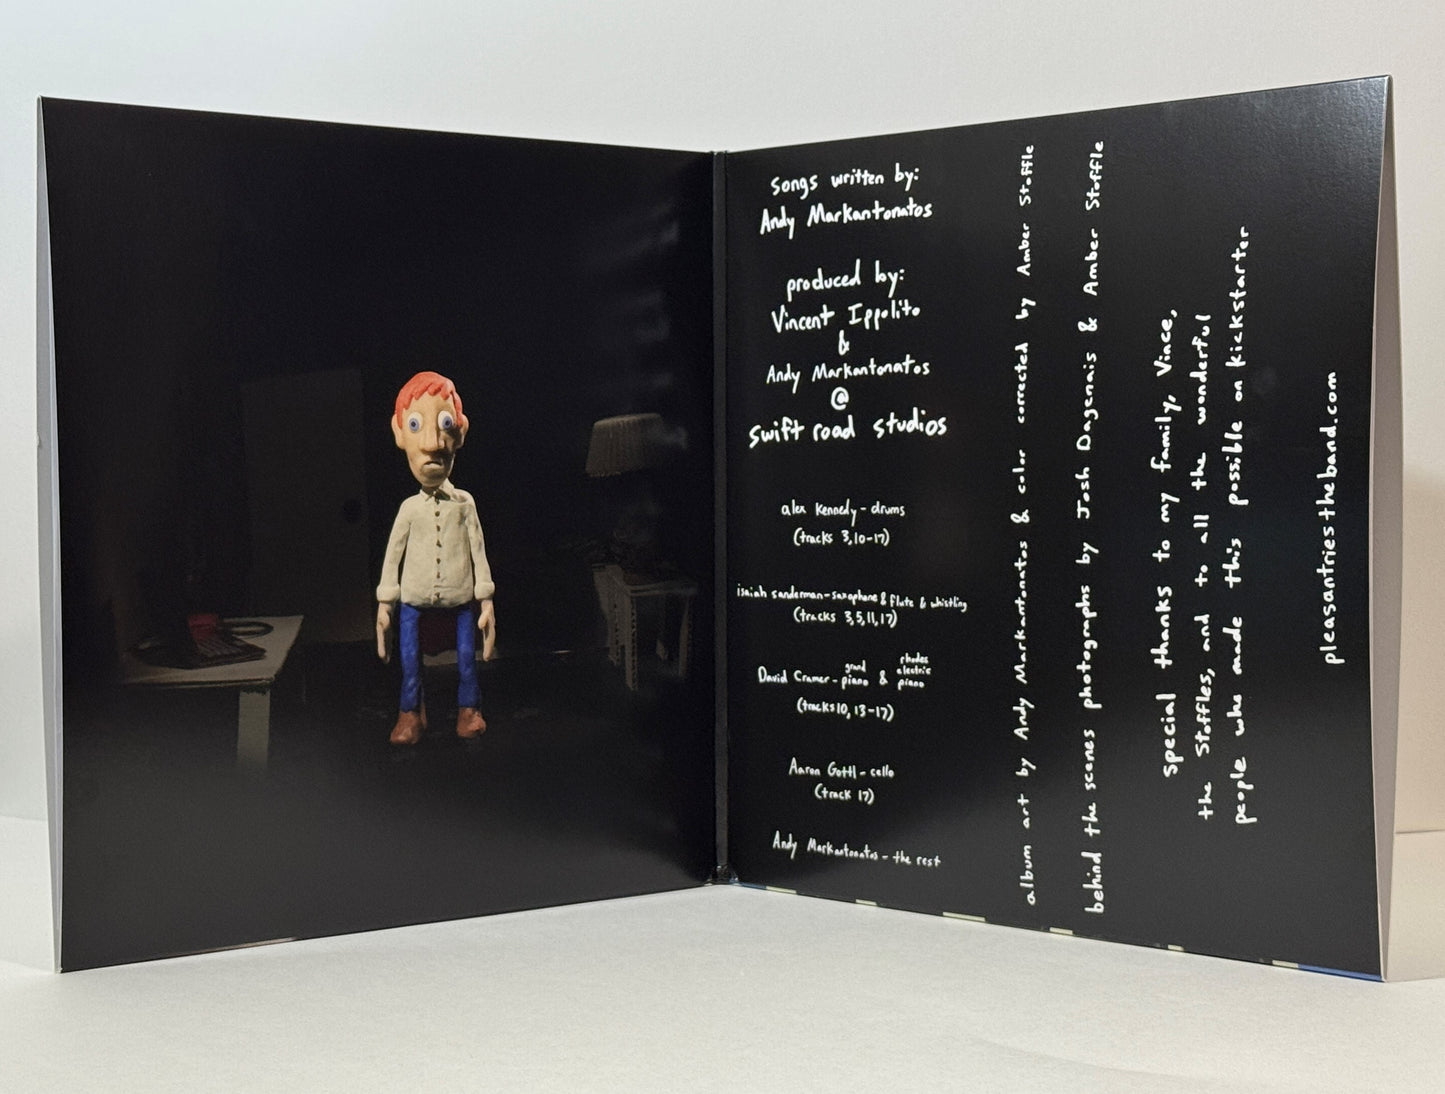 songs written by:
Andy Markantonatos
produced by:
Vincent Ippolito
&
Andy Markantonatos
@
swift road studios
alex Kennedy - drums
(tracks 3,10-17)
isaiah sanderman - saxophone & flute & whistling
(tracks 3,5,11,17)
David Cramer - grand piano & rhodes electric piano
(tracks 10, 13-17)
Aaron Gottl - cello
(track 17)
Andy Markantonatos - the rest
album art by Andy Markantonatos & color corrected by Amber Stoffle
behind the scenes photographs by Josh Dagenais & Amber Stoffle
special thanks to my family, Vince,
the Stoffles, and to all the wonderful
people who made this possible on kickstarter
pleasantriestheband.com